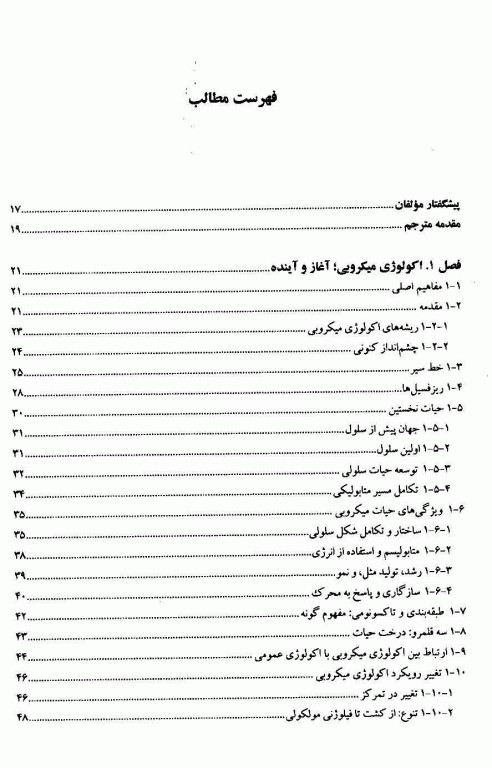 فهرست مطالب
پیشگفتار مؤلفان ۱۷
مقدمه مترجم ۱۹
فصل ۱. اکولوژی میکروبی؛ آغاز و آینده ۲۱
۱-۱ مفاهیم اصلی ۲۱
۱-۲ مقدمه ۲۱
۱-۲-۱ ریشه‌های اکولوژی میکروبی ۲۳
۱-۲-۲ چشم‌انداز کنونی ۲۴
۱-۳ خط سیر ۲۵
۱-۴ ریزفسیل‌ها ۲۸
۱-۵ حیات نخستین ۳۰
۱-۵-۱ جهان پیش از سلول ۳۱
۱-۵-۲ اولین سلول ۳۱
۱-۵-۳ توسعه حیات سلولی ۳۲
۱-۵-۴ تکامل مسیر متابولیکی ۳۴
۱-۶ ویژگی‌های حیات میکروبی ۳۵
۱-۶-۱ ساختار و تکامل شکل سلولی ۳۵
۱-۶-۲ متابولیسم و استفاده از انرژی ۳۸
۱-۶-۳ رشد، تولید مثل، و نمو ۳۹
۱-۶-۴ سازگاری و پاسخ به محرک ۴۰
۱-۷ طبقه‌بندی و تاکسونومی: مفهوم گونه ۴۲
۱-۸ سه قلمرو: درخت حیات ۴۳
۱-۹ ارتباط بین اکولوژی میکروبی با اکولوژی عمومی ۴۴
۱-۱۰ تغییر رویکرد اکولوژی میکروبی ۴۶
۱-۱۰-۱ تغییر در تمرکز ۴۶
۱-۱۰-۲ تنوع: از کشت تا فیلوژنی مولکولی ۴۸